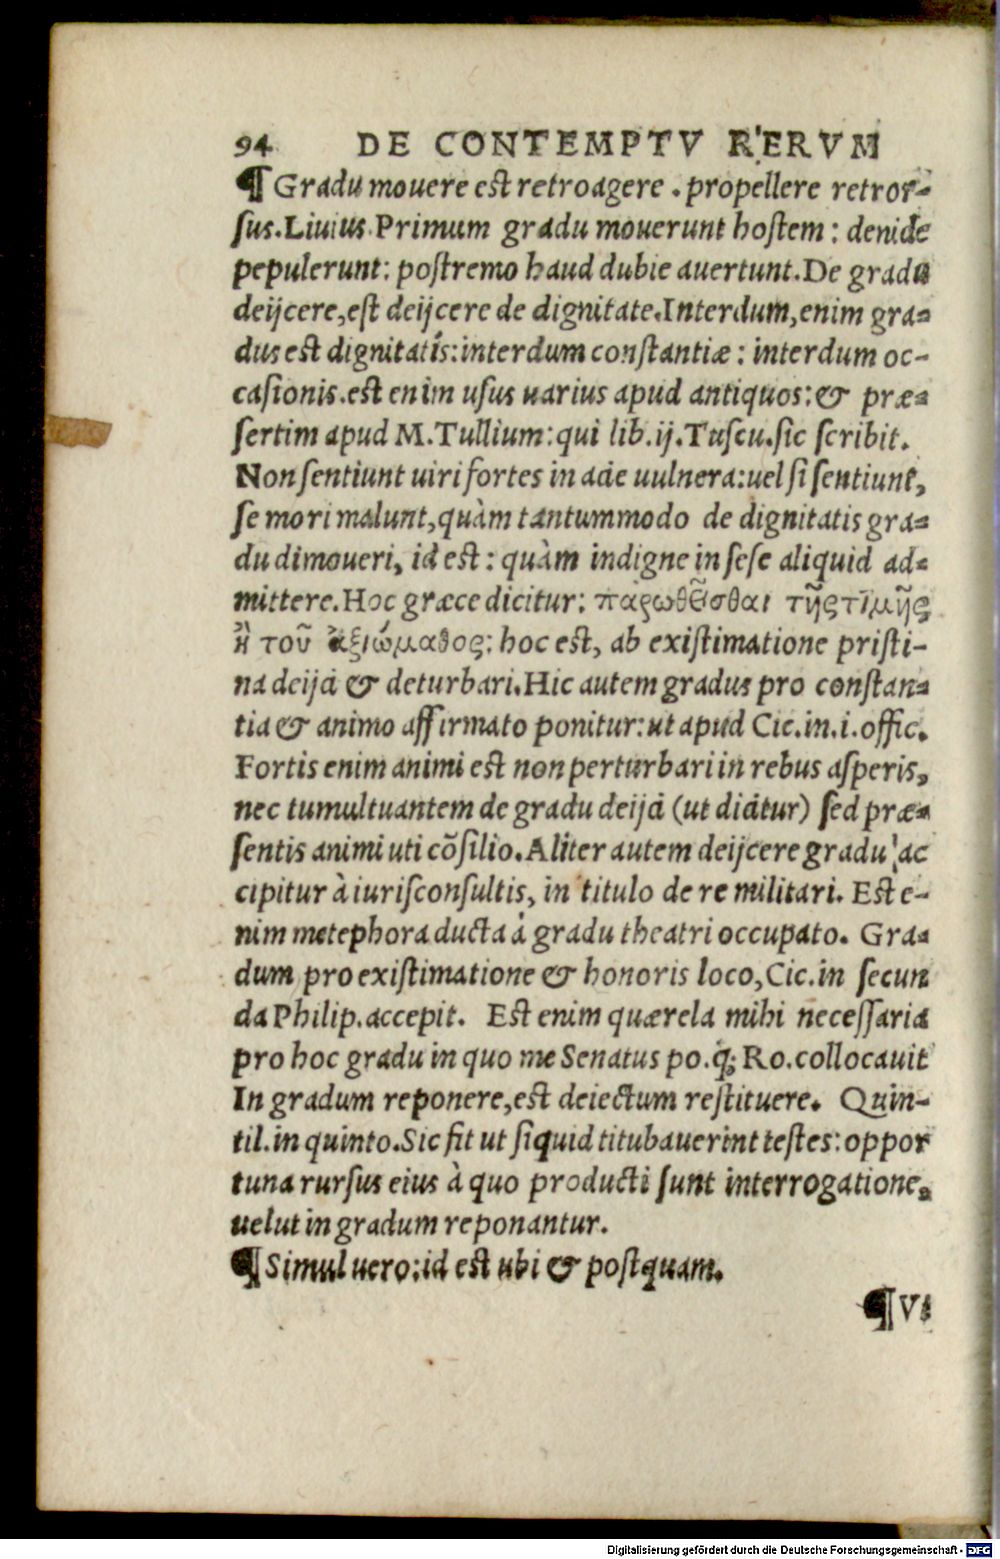 94 DE CONTEMPTV RERVM
¶ Gradu mouere est retroagere . propellere retror-
sus. Liuius. Primum gradu mouerunt hostem : denide
pepulerunt: postremo haud dubie auertunt. De gradu
deijcere, est deijcere de dignitate. Interdum, enim gra-
dus est dignitatis: interdum constantiæ : interdum oc-
casionis. est enim usus uarius apud antiquos: & præ-
sertim apud M. Tullium: qui lib. ij. Tuscu. sic scribit.
Non sentiunt uiri fortes in acie uulnera: uel si sentiunt,
se mori malunt, quàm tantummodo de dignitatis gra-
du dimoueri, id est : quàm indigne in sese aliquid ad-
mittere. Hoc græce dicitur: παρωθεῖσθαι τῆς τιμῆς
ἢ τοῦ ἀξιώμαθος: hoc est, ab existimatione pristi-
na deijci & deturbari. Hic autem gradus pro constan-
tia & animo affirmato ponitur: ut apud Cic. in. i. offic.
Fortis enim animi est non perturbari in rebus asperis,
nec tumultuantem de gradu deijci (ut dicitur) sed præ-
sentis animi uti cõsilio. Aliter autem deijcere gradu ac
cipitur à iurisconsultis, in titulo de re militari. Est e-
nim metephora ducta à gradu theatri occupato. Gra-
dum pro existimatione & honoris loco, Cic. in secun
da Philip. accepit. Est enim quærela mihi necessaria
pro hoc gradu in quo me Senatus po. q; Ro. collocauit
In gradum reponere, est deiectum restituere. Quin-
til. in quinto. Sic fit ut siquid titubauerint testes: oppor
tuna rursus eius à quo producti sunt interrogatione,
uelut in gradum reponantur.
¶ Simul uero: id est ubi & postquam.
¶ Vi
Digitalisierung gefördert durch die Deutsche Forschungsgemeinschaft - DFG